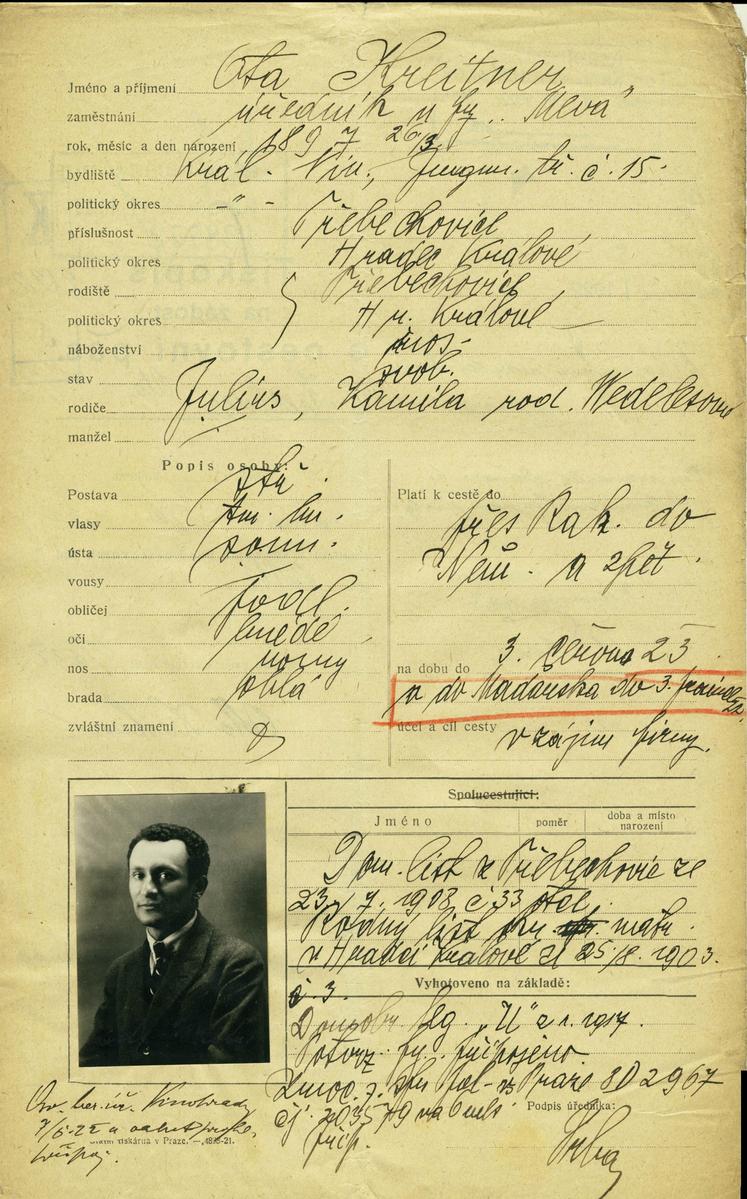 Jméno a příjmení Ota Kreitner
zaměstnání úředník u fy. „Meva"
rok, měsíc a den narození 1897 26/3
bydliště Král. Vin., Jungm. tř. č. 15.
politický okres -"-
příslušnost Třebechovice
politický okres Hradec Králové
rodiště Třebechovice
politický okres Hr. Králové
náboženství mos.
stav svob.
rodiče Julius, Kamila roz. Wedelesová
manžel
Popis osoby:
Postava stř.
vlasy tm. hn.
ústa soum.
vousy
obličej podl.
oči hnědé
nos rovný
brada oblá
zvláštní znamení
Platí k cestě do
přes Rak. do
Něm. a zpět.
na dobu do 3. června 23
a do Maďarska do 3.
účel a cíl cesty
v zájmu firmy.
Spolucestující:
Jméno poměr doba a místo narození
Dom. list z Třebechovic ze
23./7. 1908 č. 33
Rodný list matr.
v Hradci Králové z 25/8. 1903.
č. 3.
Vyhotoveno na základě:
leg. „U" z r. 1917.
Potvrz. fy. připojeno.
pol. v Praze 8D 2967
čj.
příp.
Podpis úředníka:
Vinohrady
Státní tiskárna v Praze. — 4878-21.